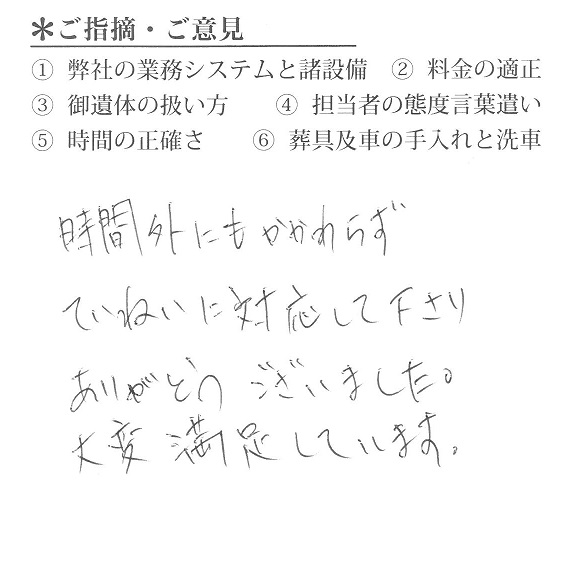 ＊ご指摘・ご意見
① 弊社の業務システムと諸設備　② 料金の適正
③ 御遺体の扱い方　④ 担当者の態度言葉遣い
⑤ 時間の正確さ　⑥ 葬具及車の手入れと洗車
時間外にもかかわらず
ていねいに対応して下さり
ありがとうございました。
大変満足しています。